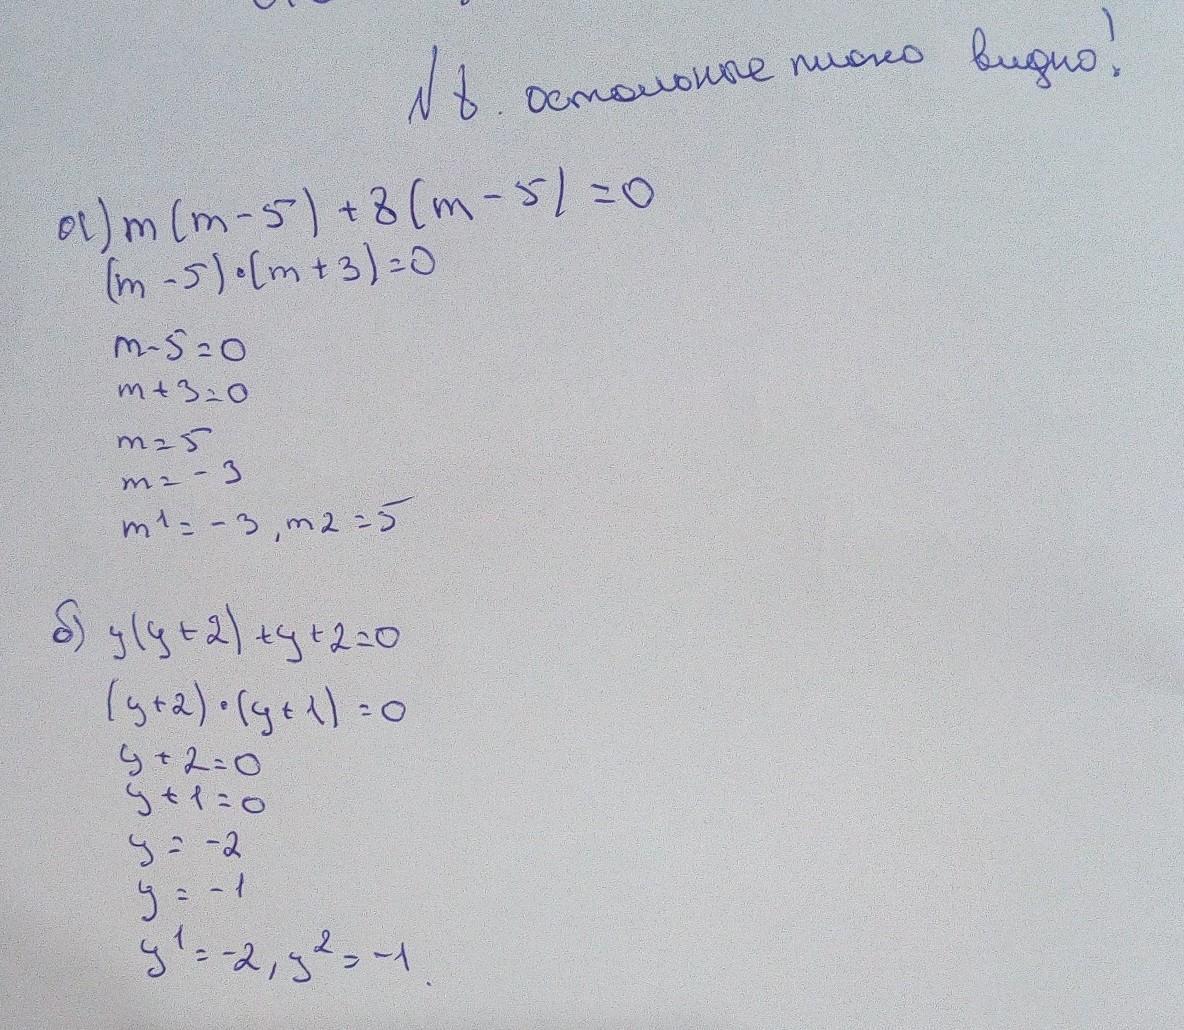 № 8. остальное плохо видно!
а) m(m-5)+3(m-5)=0
(m-5)•(m+3)=0
m-5=0
m+3=0
m=5
m=-3
m1=-3, m2=5
б) y(y+2)+y+2=0
(y+2)•(y+1)=0
y+2=0
y+1=0
y=-2
y=-1
y1=-2, y2=-1.